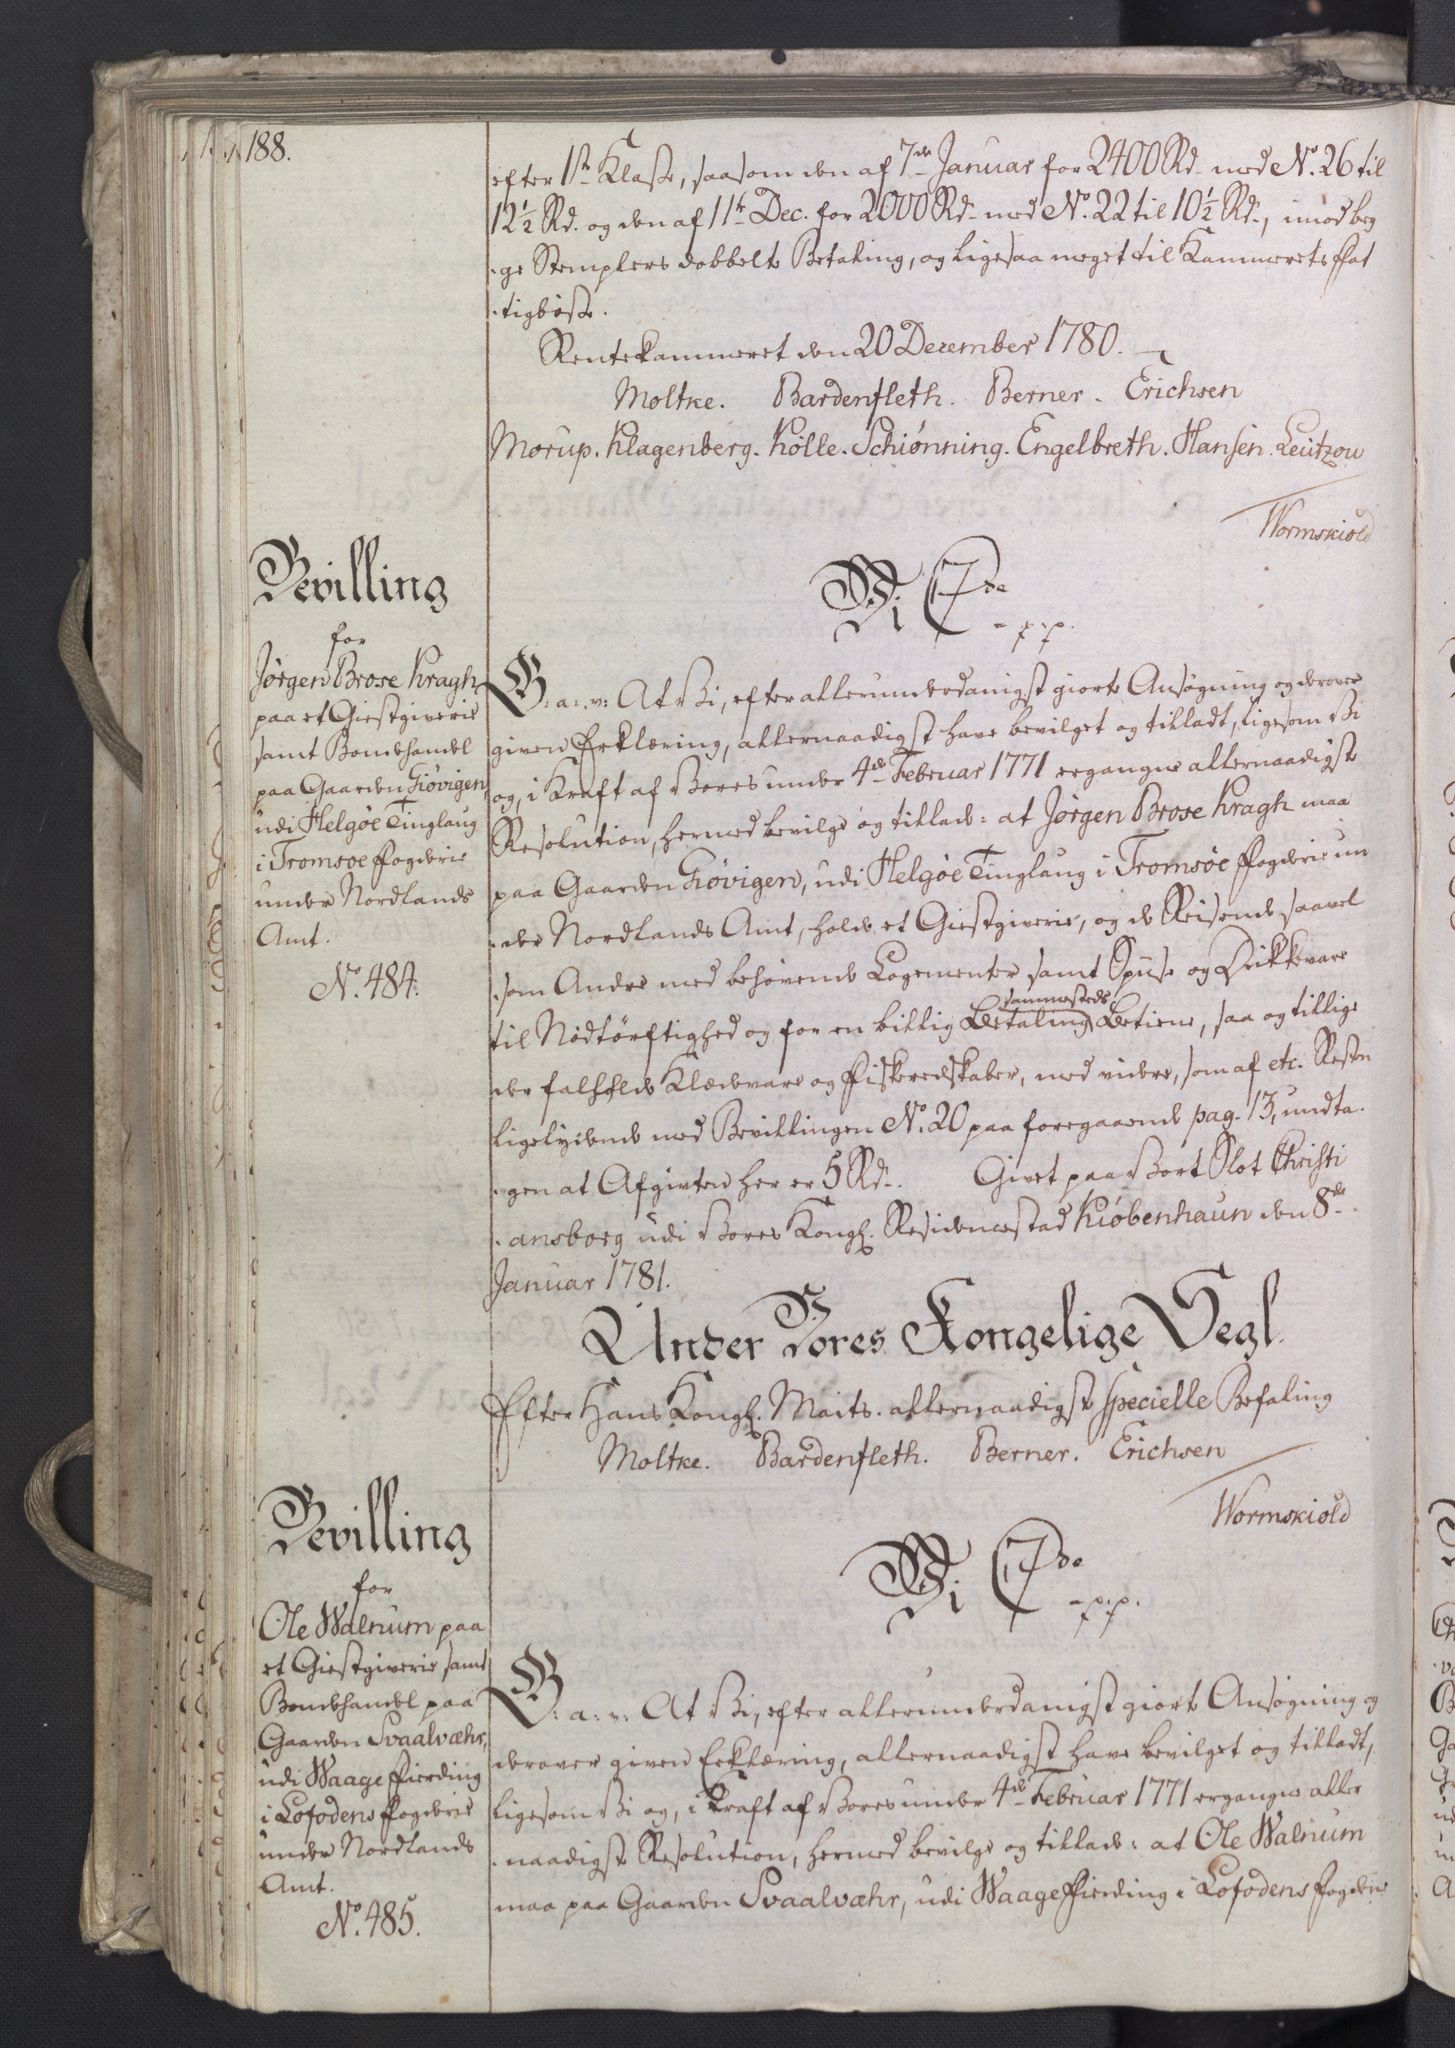 188.
efter 1ste Klasse, saasom den af 7de Januar for 2400 Rd. med No. 26 til
12½ Rd. og den af 11te Dec. for 2000 Rd. med No. 22 til 10½ Rd., imod beg
ge Stemplers dobbelte Betaling, og ligesaa meget til Kammerets Fat
tigbösse.
Rentekammeret den 20 December 1780.
Moltke. Bardenfleth. Berner. Erichsen
Morup. Klagenberg. Kölle. Schiønning. Engelbreth. Hansen. Leützou
Wormskiold
Bevilling
for
Jørgen Brose Kragh
paa et Giestgiverie
samt Bondehandel
paa Gaarden Giøvigen
udi Helgøe Tinglaug
i Tromsøe Fogderie
under Nordlands
Amt.
No. 484.
Vi C7de
- p.p.
G: a: v: At Vi, efter allerunderdanigst giorte Ansøgning og derover
given Erklæring, allernaadigst have bevilget og tilladt, ligesom Vi
og, i Kraft af Vores under 4de Februar 1771 ergangne allernaadigste
Resolution, hermed bevilge og tillade: at Jørgen Brose Kragh maa
paa Gaarden Giøvigen, udi Helgøe Tinglaug i Tromsøe Fogderie un
der Nordlands Amt, holde et Giestgiverie, og de Reisende saavel
som Andre med behøvende Logementer samt Spise og Drikkevare
til Nödtörftighed og for en billig Betaling sammesteds betiene, saa og tillige
der falholde Klædevare og Fiskeredskaber, med videre, som af etc. Resten
ligelydende med Bevillingen No. 20 paa foregaaende pag. 13, undta
gen at Afgivten her er 5 Rd. Givet paa Vort Slot Christi
ansborg udi Vores Kongl. Residencestad Kiøbenhaun den 8de
Januar 1781.
Under Vores Kongelige Segl.
Efter Hans Kongl. Maits. allernaadigste specielle Befaling
Moltke. Bardenfleth. Berner. Erichsen
Wormskiold
Bevilling
for
Ole Walnum paa
et Giestgiverie samt
Bondehandel paa
Gaarden Svaalvæhr,
udi Waage Fierding
i Lofodens Fogderie
under Nordlands
Amt.
No. 485.
Vi C7de
- p.p.
G: a: v: At Vi, efter allerunderdanigst giorte Ansøgning og
derover given Erklæring, allernaadigst have bevilget og tilladt,
ligesom Vi og, i Kraft af Vores under 4de Februar 1771 ergangne aller
naadigste Resolution, hermed bevilge og tillade: at Ole Walnum
maa paa Gaarden Svaalvæhr, udi Waage Fierding i Lofodens Fogderie